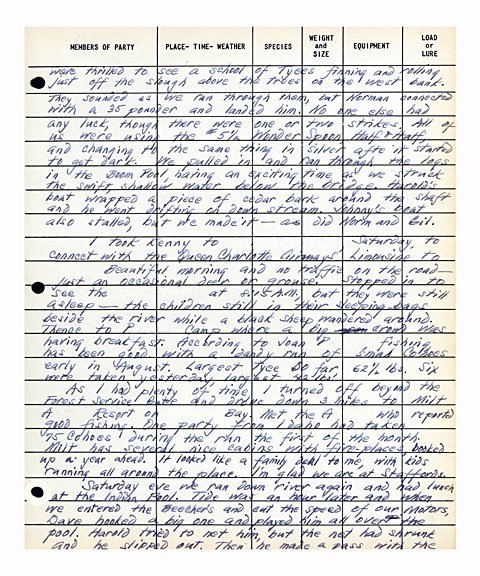 MEMBERS OF PARTY PLACE- TIME- WEATHER SPECIES WEIGHT and SIZE EQUIPMENT LOAD or LURE
were thrilled to see a school of Tyees finning and rolling
just off the slough above the trees on the west bank.
They sounded as we ran through them, but Norman connected
with a 35 pounder and landed him. No one else had
any luck, though there were one or two strikes. All of
us were using the #5½ Wonder Spoon Half & Half
and changing to the same thing in silver after it started
to get dark. We pulled in and ran through the logs
in the Boom Pool, having an exciting time as we struck
the swift, shallow water below the bridge. Harold's
boat wrapped a piece of cedar bark around the shaft
and he went drifting on down stream. Johnny's boat
also stalled, but we made it — as did North and Gil.
I took Kenny to Saturday, to
connect with the Queen Charlotte Airways' Limousine to
Beautiful morning and no traffic on the road—
just an occasional deer or grouse. Stopped in to
see the at 8:15 A.M. but they were still
asleep — the children still in their sleeping bags
beside the river while a black sheep wandered around.
Thence to P Camp where a big crowd was
having breakfast. According to Joan P fishing
has been good with a dandy run of small Cohoes
early in August. Largest Tyee so far, 62½ lbs. Six
were taken yesterday, largest
As I had plenty of time, I turned off beyond the
Forest Service Gate and drove down 3 miles to Milt
A Resort on Bay. Met the A who reported
good fishing. One party from Idaho had taken
75 Cohoes during the run the first of the month.
Milt has several nice cabins with fire-places, booked
up a year ahead. It looked like a family deal to me, with kids
running all around the place. I'm glad we are at Staffords.
Saturday eve we ran down river again and had lunch
at the Indian Pool. Tide was an hour later and when
we entered the Beechers and cut the speed of our motors,
Dave hooked a big one and played him all over the
pool. Harold tried to net him, but the net had shrunk
and he slipped out. Then he made a pass with the